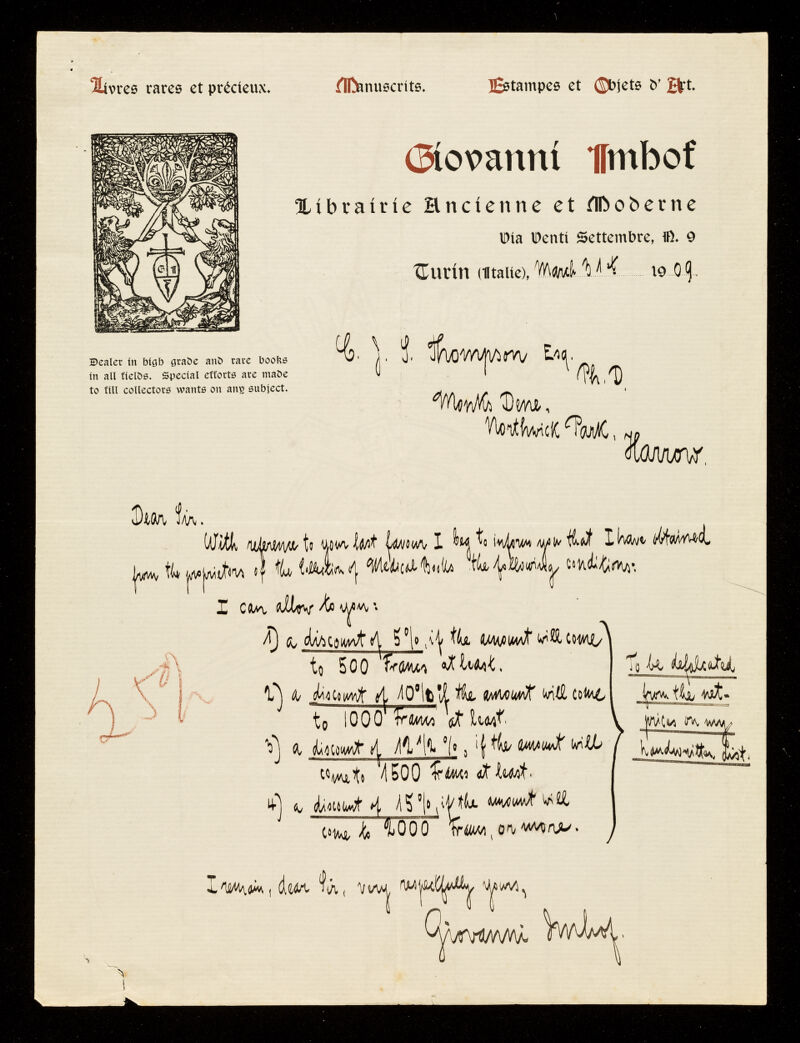 Livres rares et précieux. Manuscrits. Estampes et Objets d'Art.
Giovanni Imhof
Librairie Ancienne et Moderne
Via Venti Settembre, N. 9
Turin (Italie), March 31st 1909.
G I
Dealer in high grade and rare books
in all fields. Special efforts are made
to fill collectors wants on any subject.
C. J. S. Thompson Esq.
Ph. D.
Monks Dene,
Northwick Park,
Harrow.
Dear Sir.
With reference to your last favour I beg to inform you that I have obtained
from the proprietors of the Collection of Medical Books the following conditions:
I can allow to you:
1) a discount of 5%, if the amount will come
to 500 Francs at least.
2) a discount of 10% if the amount will come
to 1000 Francs at least.
3) a discount of 12 1/2 %, if the amount will
come to 1500 Francs at least.
4) a discount of 15%, if the amount will
come to 2000 Francs, or more.
To be defalcated
from the net-
prices on my
handwritten List.
25%
I remain, dear Sir, very respectfully yours,
Giovanni Imhof.